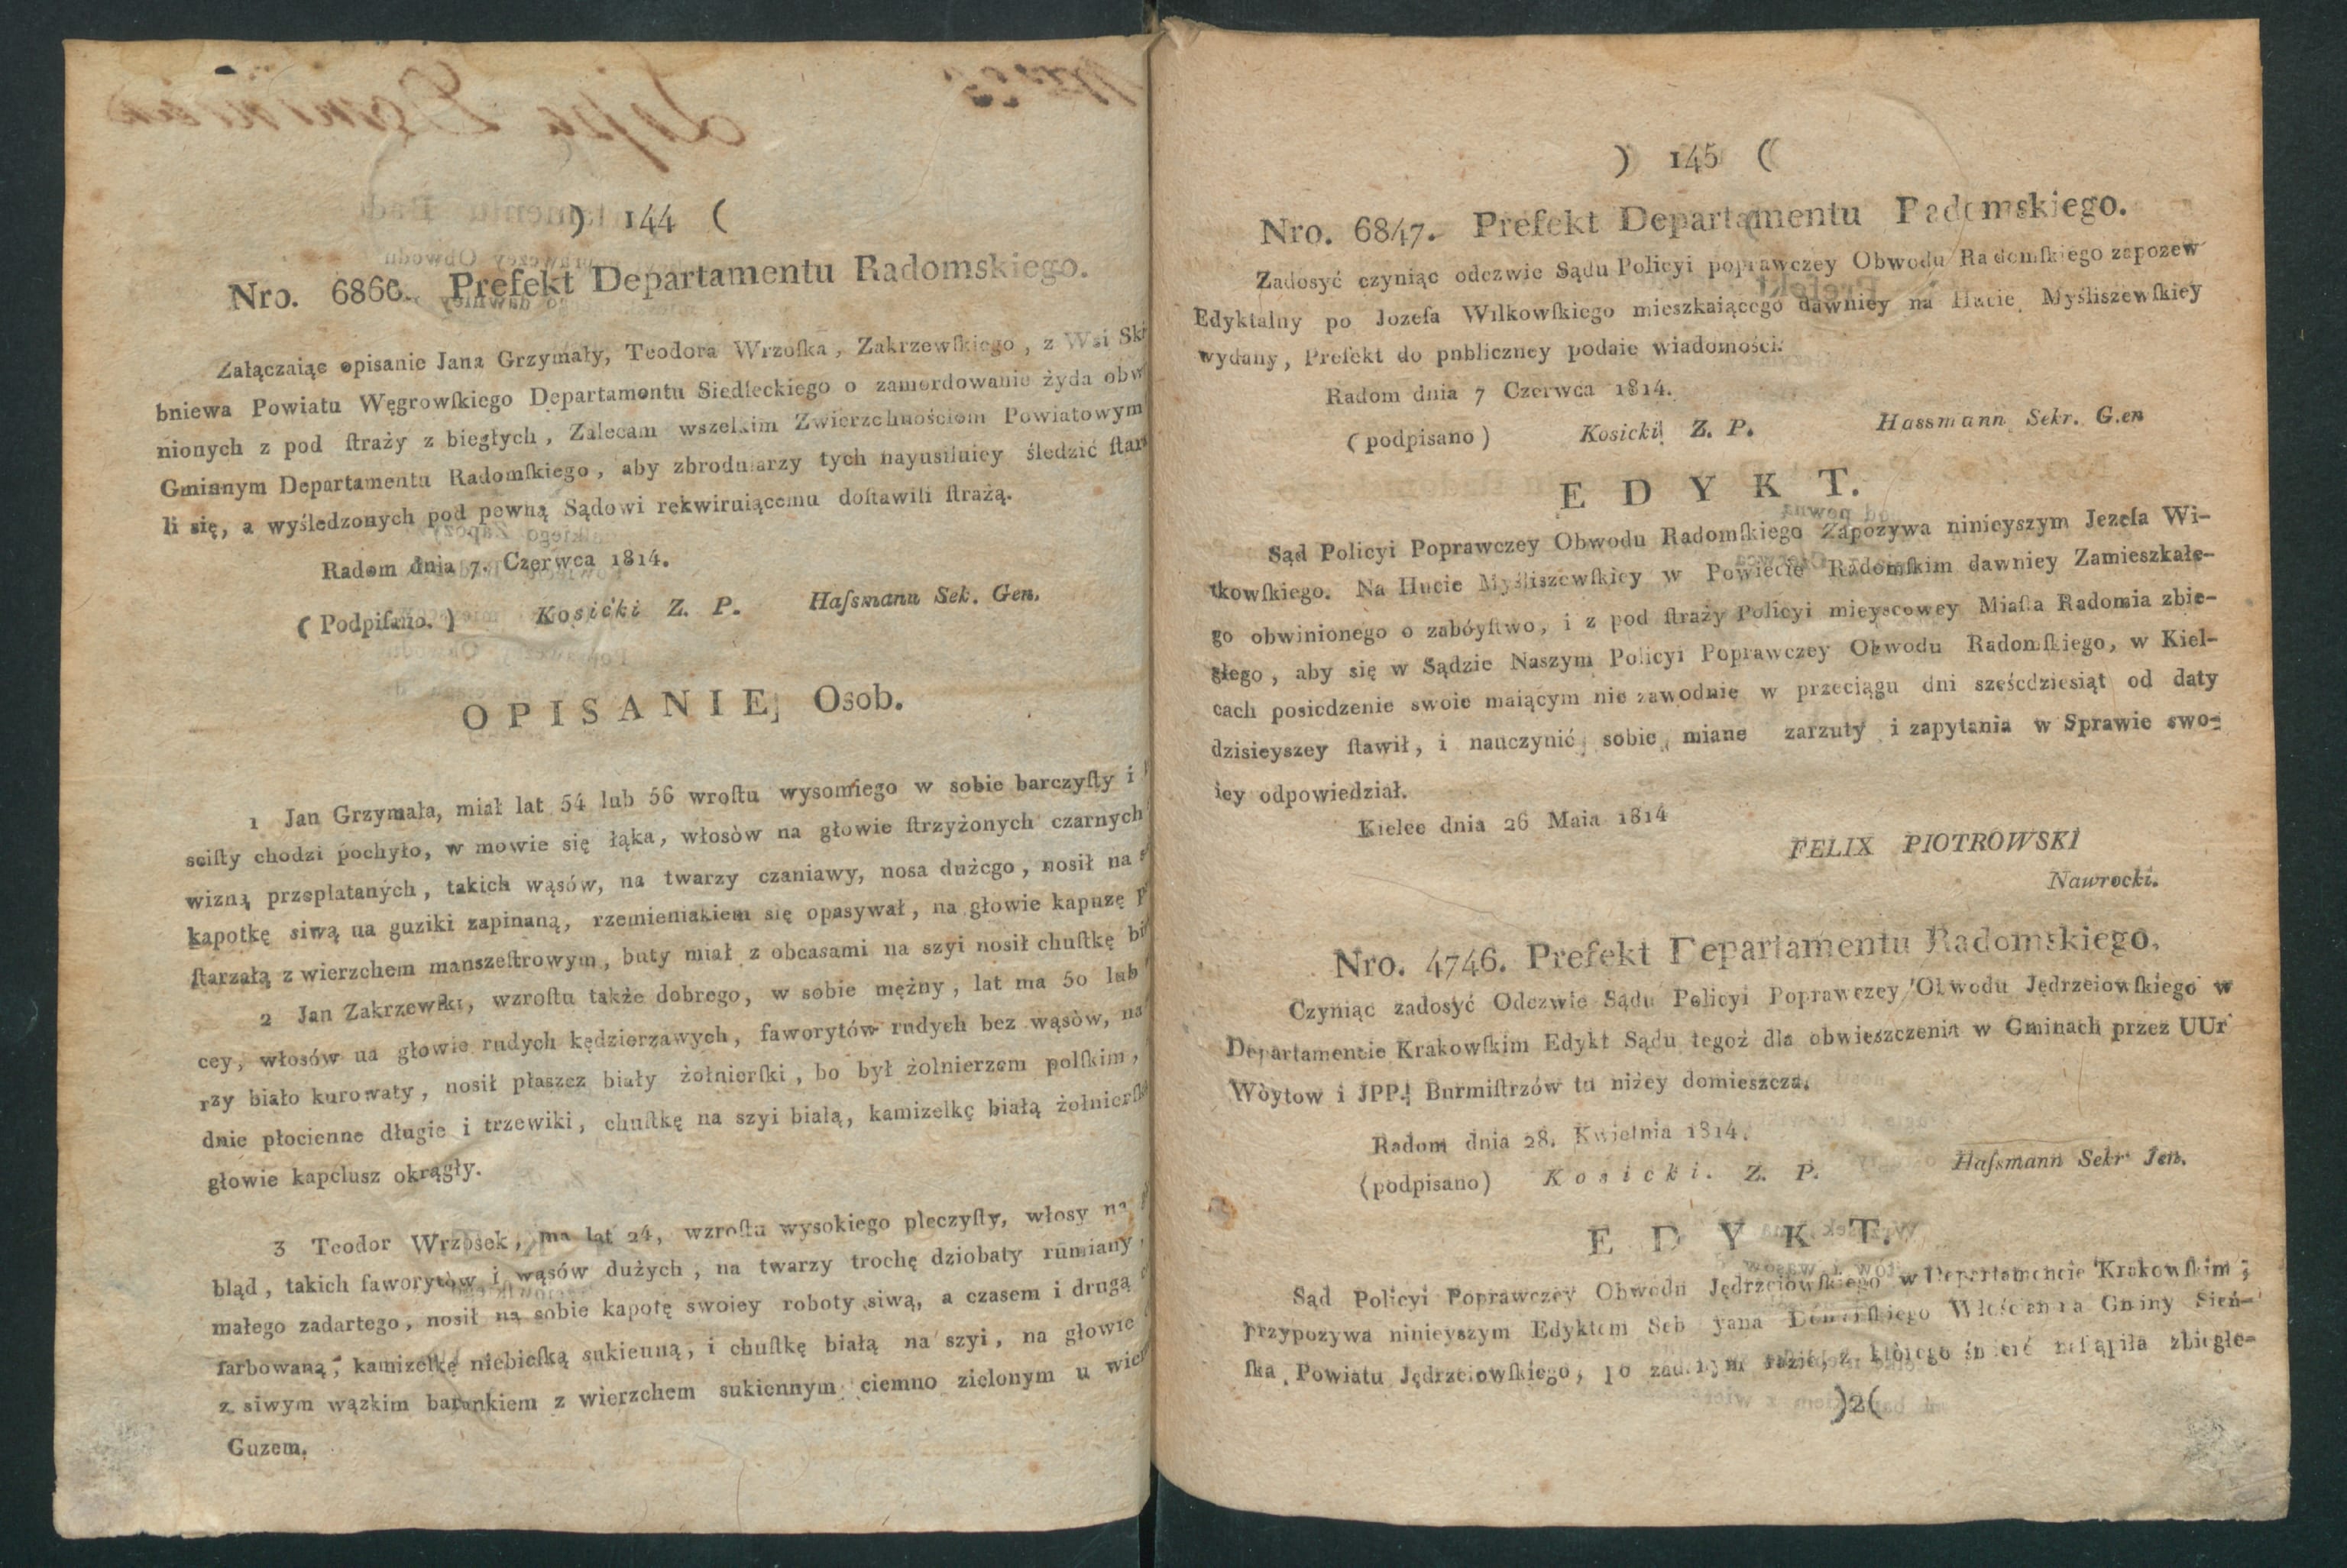 ) 144 (
Nro. 6866. Prefekt Departamentu Radomskiego.
Załączaiąc opisanie Jana Grzymały, Teodora Wrzoſka, Zakrzewſkiego, z Wsi Sk
bniewa Powiatu Węgrowſkiego Departamentu Siedleckiego o zamordowanie żyda obw
nionych z pod ſtraży z biegłych, Zalecam wszelkim Zwierzchnościom Powiatowym
Gminnym Departamentu Radomſkiego, aby zbrodniarzy tych nayusilniey śledzić ſtar
li się, a wyśledzonych pod pewną Sądowi rekwiruiącemu doſtawili ſtrażą.
Radom dnia 7. Czerwca 1814.
(Podpiſano.) Kosicki Z. P. Haſsmann Sek. Gen.
OPISANIE Osob.
1 Jan Grzymała, miał lat 54 lub 56 wroſtu wysomiego w sobie barczyſty i
sciſty chodzi pochyło, w mowie się łąka, włosòw na głowie ſtrzyżonych czarnych
wizną przeplatanych, takich wąsów, na twarzy czaniawy, nosa dużego, nosił na
kapotkę siwą na guziki zapinaną, rzemieniakiem się opasywał, na głowie kapuzę
ſtarzałą z wierzchem manszeſtrowym, buty miał z obcasami na szyi nosił chuſtkę bi
2 Jan Zakrzewſki, wzroſtu także dobrego, w sobie mężny, lat ma 50 lub
cey, włosów na głowie rudych kędzierzawych, faworytów rudych bez wąsòw, na
rzy biało kurowaty, nosił płaszcz biały żołnierſki, bo był żolnierzem polſkim,
dnie płocienne długie i trzewiki, chuſtkę na szyi białą, kamizelkę białą żołnierſk
głowie kapelusz okrągły.
3 Teodor Wrzosek, ma lat 24, wzroſtu wysokiego pleczyſty, włosy na
bląd, takich faworytów i wąsów dużych, na twarzy trochę dziobaty rumiany,
małego zadartego, nosił na sobie kapotę swoiey roboty siwą, a czasem i drugą
farbowaną, kamizelkę niebieſką sukienną, i chuſtkę białą na szyi, na głowie
z siwym wązkim barankiem z wierzchem sukiennym ciemno zielonym u wie
Guzem.
) 145 (
Nro. 6847. Prefekt Departamentu Radomskiego.
Zadosyć czyniąc odezwie Sądu Policyi poprawczey Obwodu Radomſkiego zapozew
Edyktalny po Jozefa Wilkowſkiego mieszkaiącego dawniey na Hucie Myśliszewſkiey
wydany, Prefekt do pnbliczney podaie wiadomości.
Radom dnia 7 Czerwca 1814.
(podpisano) Kosicki Z. P. Hassmann Sekr. G.en
EDYKT.
Sąd Policyi Poprawczey Obwodu Radomſkiego Zapozywa ninieyszym Jezefa Wi-
tkowſkiego. Na Hucie Myśliszewſkiey w Powiecie Radomſkim dawniey Zamieszkałe-
go obwinionego o zabóyſtwo, i z pod ſtraży Policyi mieyscowey Miaſta Radomia zbie-
głego, aby się w Sądzie Naszym Policyi Poprawczey Obwodu Radomſkiego, w Kiel-
cach posiedzenie swoie maiącym nie zawodnie w przeciągu dni sześcdziesiąt od daty
dzisieyszey ſtawił, i nauczynić sobie miane zarzuty i zapytania w Sprawie swo-
iey odpowiedział.
Kielce dnia 26 Maia 1814
FELIX PIOTROWSKI
Nawrocki.
Nro. 4746. Prefekt Departamentu Radomskiego.
Czyniąc zadosyć Odezwie Sądu Policyi Poprawczey Obwodu Jędrzeiowſkiego w
Departamencie Krakowſkim Edykt Sądu tegoż dla obwieszczenia w Gminach przez UUr
Wòytow i JPP. Burmiſtrzów tu niżey domieszcza.
Radom dnia 28. Kwietnia 1814.
(podpisano) Kosicki. Z. P. Haſsmann Sekr Jen.
EDYKT.
Sąd Policyi Poprawczey Obwodu Jędrzeiowſkiego w Departamencie Krakowſkim
przypozywa ninieyszym Edyktem Gminy Sień-
ſka Powiatu Jędrzeiowſkiego, po którego śmierć naſtąpiła zbiegłe-
)2(